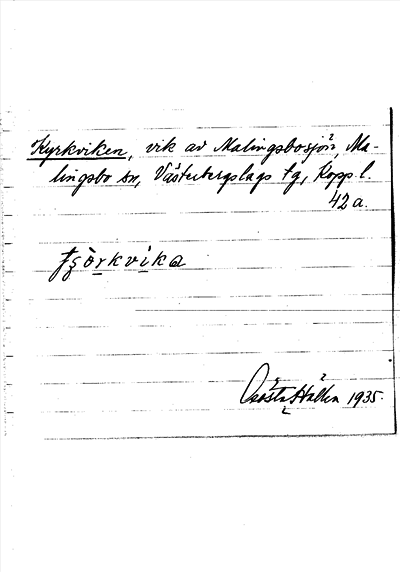 Kyrkviken, vik av Malingsbosjön, Ma-
lingsbo sn, Västerbergslags tg, Kopp. l.
42 a.
kvika
1935.